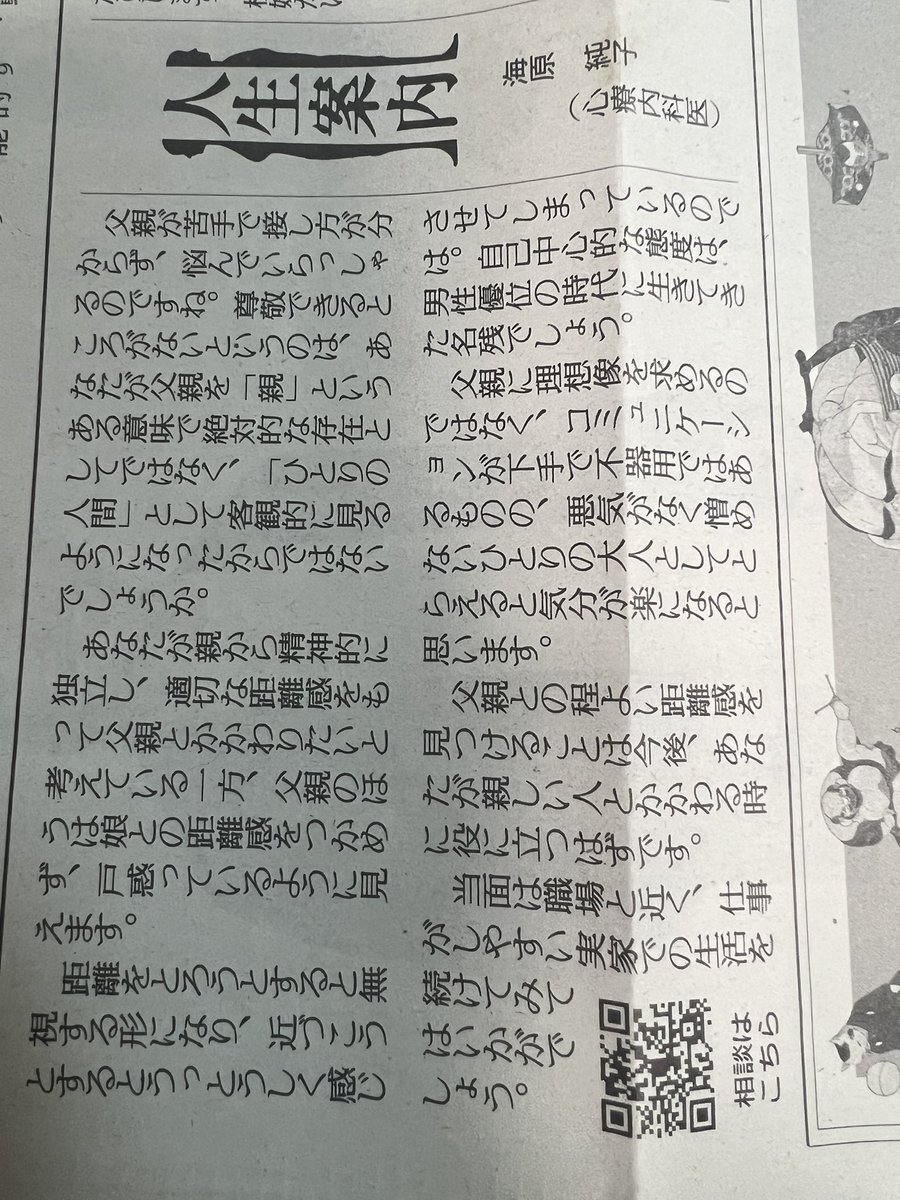 人生案内
海原 純子
(心療内科医)
父親が苦手で接し方が分
からず、悩んでいらっしゃ
るのですね。尊敬できると
ころがないというのは、あ
なたが父親を「親」という
ある意味で絶対的な存在と
してではなく、「ひとりの
人間」として客観的に見る
ようになったからではない
でしょうか。
あなたが親から精神的に
独立し、適切な距離感をも
って父親とかかわりたいと
考えている一方、父親のほ
うは娘との距離感をつかめ
ず、戸惑っているように見
えます。
距離をとろうとすると無
視する形になり、近づこう
とするとうっとうしく感じ
させてしまっているので
は。自己中心的な態度は、
男性優位の時代に生きてき
た名残でしょう。
父親に理想像を求めるの
ではなく、コミュニケーシ
ョンが下手で不器用ではあ
るものの、悪気がなく憎め
ないひとりの大人としてと
らえると気分が楽になると
思います。
父親との程よい距離感を
見つけることは今後、あな
たが親しい人とかかわる時
に役に立つはずです。
当面は職場と近く、仕事
がしやすい実家での生活を
続けてみて
はいかがで
しょう。
相談は
こちら